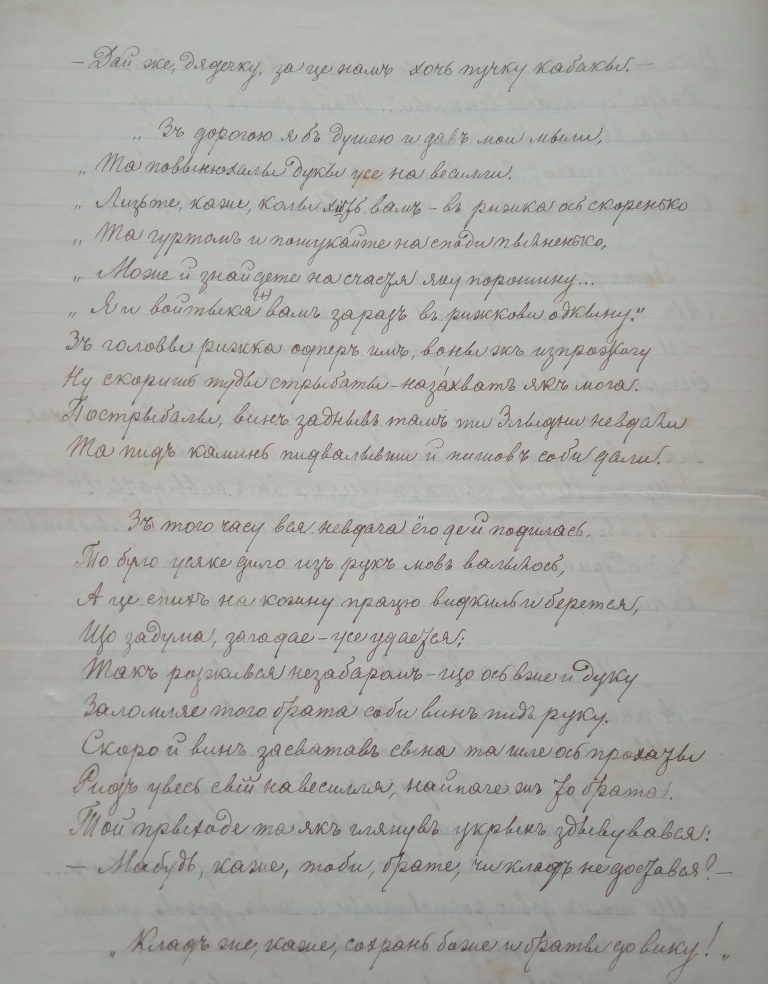 — Дай же, дядечку, за це намъ хочь пучку кабакы. —
„ Зъ дорогою я бъ душею и давъ мои мыли,
„ Та повынюхалы дукы усе на весилли.
„ Лизьте, каже, колы хизъ вамъ – въ рижка ось скоренько
„ Та гуртомъ и пошукайте на споди пывненько,
„ Може й знайдете на счастя яку порошину...
„ Я и войтыка (*) вамъ заразъ въ рижкови одкыну."
Зъ головы рижка одперъ имъ, воны жъ изпрожогу
Ну скоришъ туды стрыбаты – наза́хватъ якъ мога.
Пострыбалы, винъ заднывъ тамъ ти Злыдни невдали
Та пидъ каминь пидвалывши й пишовъ соби дали.
Зъ того часу вся невдача ёго де й подилась,
То було усяке дило изъ рукъ мовъ валылось,
А це спихъ на кожну працю видкиль и берется,
Що задума, загадае – усе удается;
Такъ розжився незабаромъ – що ось вже и дуку
Заломляе того брата соби винъ пидъ руку.
Скоро й винъ засватавъ сына та шле ось прохаты
Ридъ увесь свій на весилля, найпаче жъ то брата.
Той прыходе та якъ глянувъ укрыкъ здывувався:
— Мабудь, каже, тоби, брате, чи кладъ не достався? —
„ Кладъ же, каже, сохрань боже и браты до вику! „